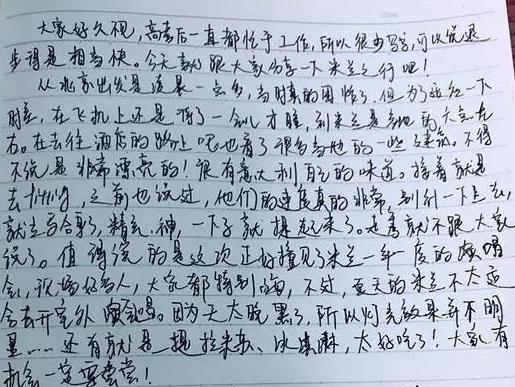 大家好久不见，高考后一直都忙于工作，所以很少写字，可以说退
步得是相当快。今天就跟大家分享一下米兰之行吧！
从北京出发是凌晨一点多，当时真的困惨了，但为了适应一下
时差，在飞机上还是等了一会儿才睡，到米兰是当地的六点左
右。在去往酒店的路上吧也看了很多当地的一些建筑，不得
不说是非常漂亮的！很有意大利自己的味道。接着就是
去fitting，之前也说过，他们的速度真的非常，别介一下
就去写合影了，精气神，一下子就提起来了。走秀就不跟大家
说了。值得说的是这次正好撞见了米兰一年一度的演唱
会，现场好多人，大家都特别嗨，不过，夏天的米兰不太适
合去开室外演唱会。因为天太晚黑了，所以灯光效果并不明
显……还有就是提拉米苏、冰淇淋，太好吃了！大家有
机会一定要尝尝！